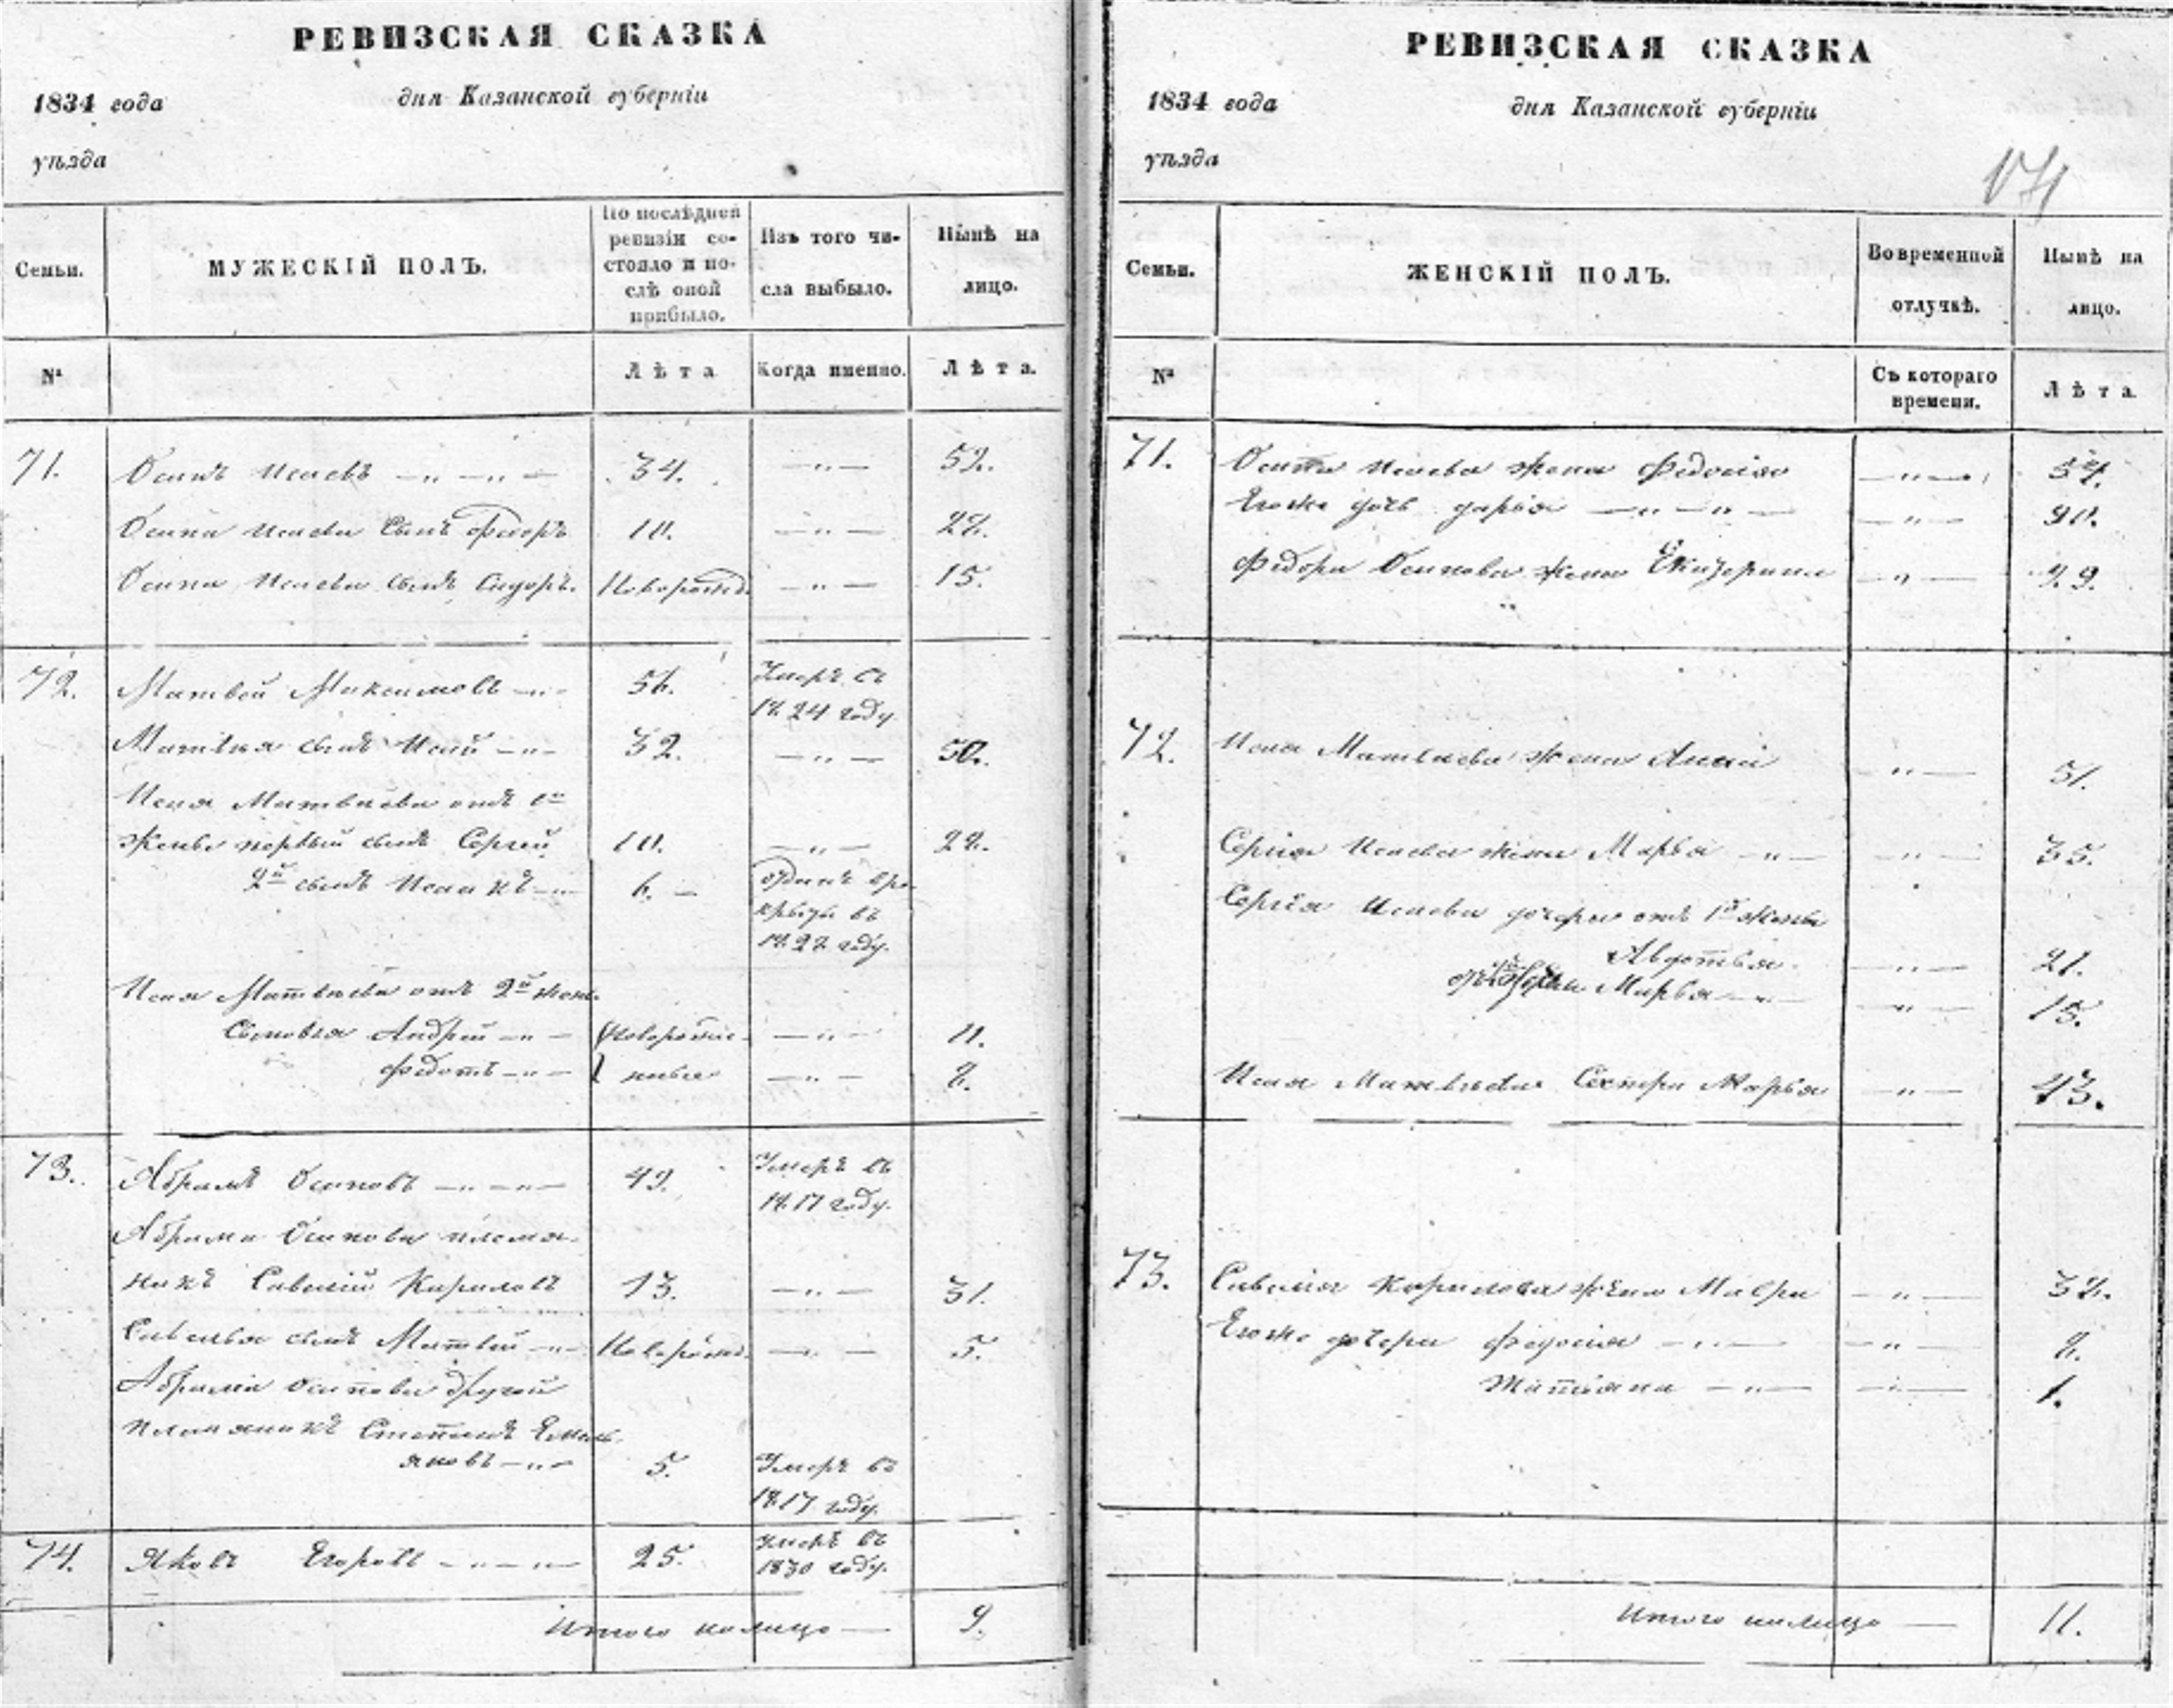 РЕВИЗСКАЯ СКАЗКА
1834 года дня Казанской губерніи
уѣзда
Семьи. МУЖЕСКІЙ ПОЛЪ. По послѣдней ревизіи состояло и послѣ оной прибыло. Изъ того числа выбыло. Нынѣ на лицо.
№ Лѣта Когда именно. Лѣта.
71. Осипъ Исаевъ — „ — „ — 34. — „ — 52.
Осипа Исаева сынъ Федоръ 10. — „ — 28.
Осипа Исаева сынъ Сидоръ. Новорожд. — „ — 15.
72. Матвей Максимовъ — „ — 56. Умеръ въ
1824 году
Матвея сынъ Исай — „ — 32. — „ — 50.
Исая Матвѣева отъ 1й
жены первый сынъ Сергей 10. — „ — 28.
2й сынъ Исаакъ — „ — 6. —
въ
1828 году.
Исая Матвѣева отъ 2й жены
Сыновья Андрей — „ — Новорожден- — „ — 11.
Федотъ — „ — ные — „ — 8.
73. Абрамъ Осиповъ — „ — „ — 49. Умеръ въ
1817 году.
Абрама Осипова племя-
никъ Савелій Кириловъ 13. — „ — 31.
Савелья сынъ Матвей — „ — Новорожд. — „ — 5.
Абрама Осипова другой
племяникъ Степанъ Емель-
яновъ — „ — 5. Умеръ въ
1817 году.
74. Яковъ Егоровъ — „ — „ — 25. Умеръ въ
1830 году.
Итого налицо — 9.
РЕВИЗСКАЯ СКАЗКА
1834 года дня Казанской губерніи
уѣзда
171
Семьи. ЖЕНСКІЙ ПОЛЪ. Во временной отлучкѣ. Нынѣ на лицо.
№ Съ котораго времени. Лѣта.
71. Осипа Исаева жена Федосія — „ — 54.
Егоже дочь дарья — „ — „ — — „ — 20.
Федора Осипова жена Екатерина — „ — 29.
72. Исая Матвѣева жена Анна — „ — 51.
Сергея Исаева жена Марья — „ — — „ — 35.
Сергея Исаева дочери отъ 1й жены
Авдотья — „ — 21.
Марья — „ — — „ — 15.
Исая Матвѣева Сестра Марья — „ — 43.
73. Савелія Кирилова жена Мавра — „ — 38.
Егоже дочери федосія — „ — — „ — 8.
Татіяна — „ — — „ — 1.
Итого налицо — 11.